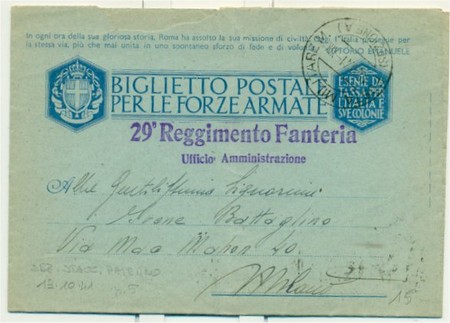 In ogni ora della sua gloriosa storia, Roma ha assolto la sua missione di civiltà
la stessa via, più che mai unita in uno spontaneo sforzo di fede e di
VITTORIO EMANUELE
BIGLIETTO POSTALE
PER LE FORZE ARMATE
ESENTE DA
TASSA PER
L'ITALIA E
SVE COLONIE
29° Reggimento Fanteria
Ufficio Amministrazione
Alla Gentilissima Signorina
Battaglino
Via Mac Mahon 20.
Milano
13.10.41
15